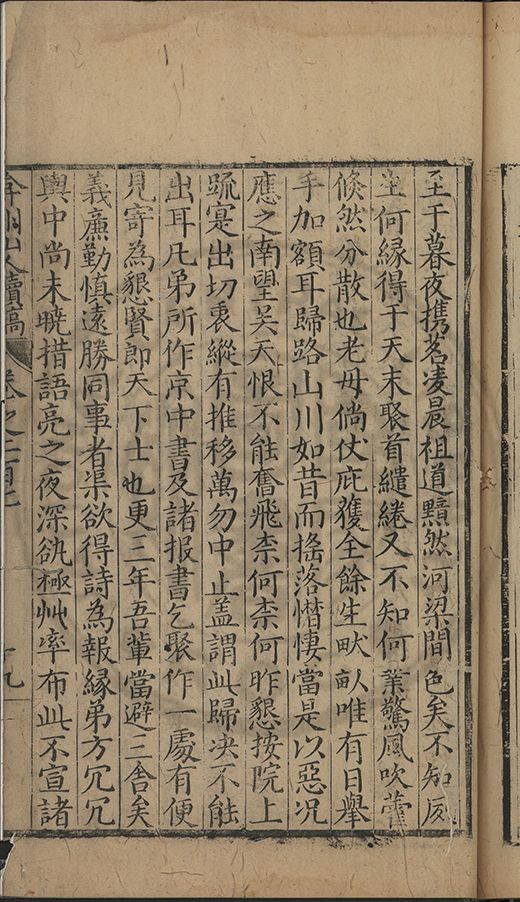 至于暮夜携茗凌晨祖道黯然河梁間色矣不知友
生何縁得于天末聚首繾綣又不知何業驚風吹蘀
倏然分散也老母倘仗庇獲全餘生畎畝唯有日舉
手加額耳歸路山川如昔而摇落憯悽當是以惡况
應之南望吴天恨不能奮飛柰何柰何昨懇按院上
疏寔出切衷縱有推移萬勿中止盖謂此歸决不能
出耳凡弟所作京中書及諸报書乞聚作一處有便
見寄為懇賢郎天下士也更三年吾輩當避三舍矣
義廉勤慎遠勝同事者渠欲得詩為報縁弟方冗冗
輿中尚未暁措語亮之夜深𠈁極艸率布此不宣諸
弇州山人續稿 卷之二百七 十九